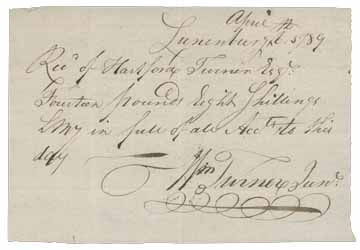 April
Lunenburg 1789
Recd of Hartford Turner Esqr.
Fourteen pounds Eight Shillings
in full of all Accts to this
day
Wm Turner Junr.